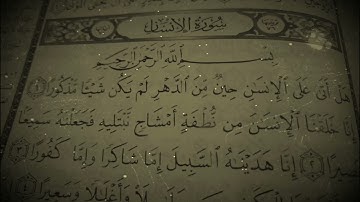 سورة الإنسان
بِسْمِ اللَّهِ الرَّحْمَٰنِ الرَّحِيمِ
هَلْ أَتَىٰ عَلَى الْإِنسَٰنِ حِينٌ مِّنَ الدَّهْرِ لَمْ يَكُن شَيْـًٔا مَّذْكُورًا ١
إِنَّا خَلَقْنَا الْإِنسَٰنَ مِن نُّطْفَةٍ أَمْشَاجٍ نَّبْتَلِيهِ فَجَعَلْنَٰهُ سَمِيعًۢا
بَصِيرًا ٢ إِنَّا هَدَيْنَٰهُ السَّبِيلَ إِمَّا شَاكِرًا وَإِمَّا كَفُورًا ٣
سَلَٰسِلَا۟ وَأَغْلَٰلًا وَسَعِيرًا ٤